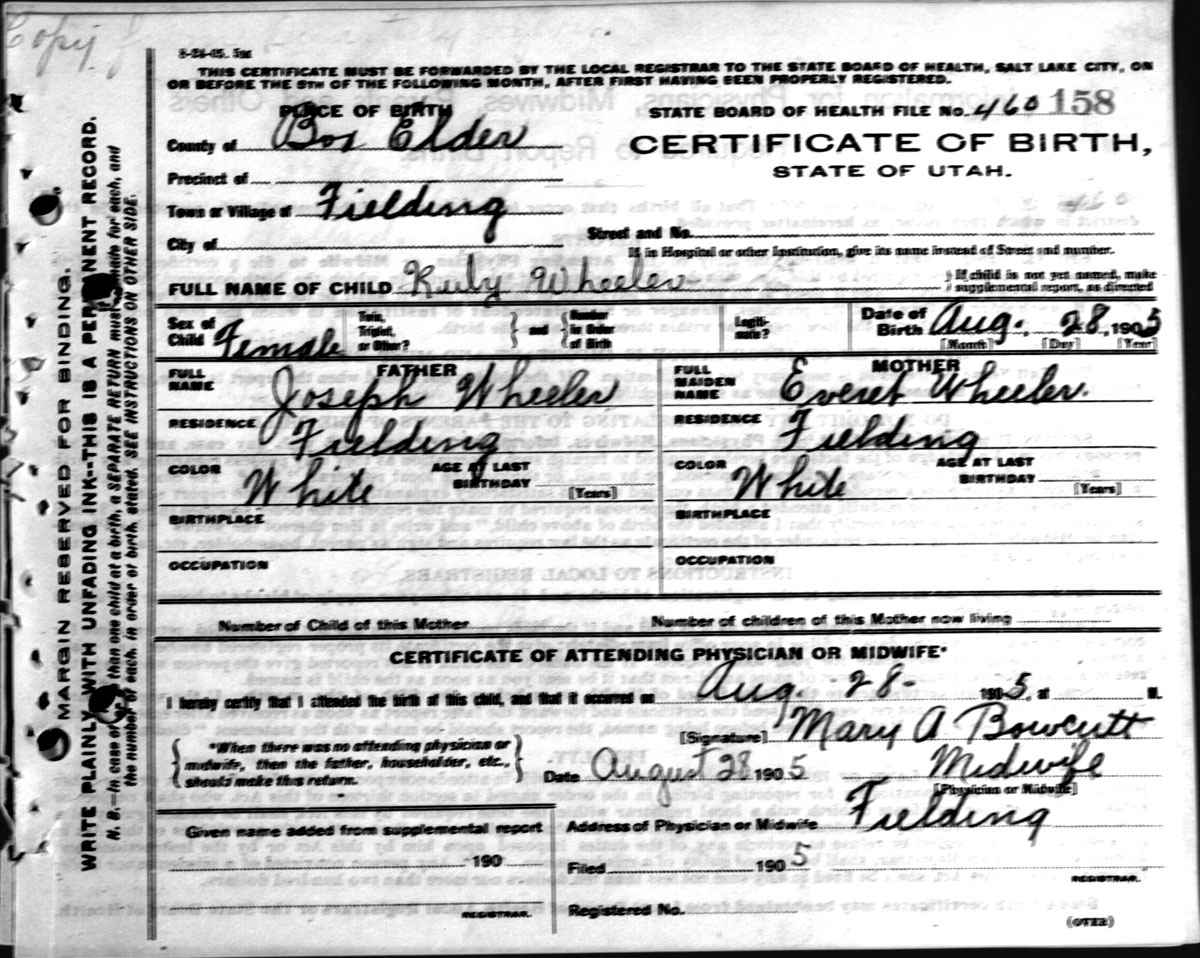 Copy
8-24-05. 5m
THIS CERTIFICATE MUST BE FORWARDED BY THE LOCAL REGISTRAR TO THE STATE BOARD OF HEALTH, SALT LAKE CITY, ON
OR BEFORE THE 5TH OF THE FOLLOWING MONTH, AFTER FIRST HAVING BEEN PROPERLY REGISTERED.
PLACE OF BIRTH
STATE BOARD OF HEALTH FILE No. 460 158
County of Box Elder
CERTIFICATE OF BIRTH,
STATE OF UTAH.
Precinct of
Town or Village of Fielding
City of
Street and No.
If in Hospital or other Institution, give its name instead of Street and number.
FULL NAME OF CHILD Ruby Wheeler
If child is not yet named, make
supplemental report, as directed
Sex of Child Female
Twin, Triplet, or Other?
and
Number in Order of Birth
Legitimate?
Date of Birth Aug. 28, 1905
[Month] [Day] [Year]
FATHER
FULL NAME Joseph Wheeler
RESIDENCE Fielding
COLOR White
AGE AT LAST BIRTHDAY
[Years]
BIRTHPLACE
OCCUPATION
MOTHER
FULL MAIDEN NAME Everet Wheeler.
RESIDENCE Fielding
COLOR White
AGE AT LAST BIRTHDAY
[Years]
BIRTHPLACE
OCCUPATION
Number of Child of this Mother
Number of children of this Mother now living
CERTIFICATE OF ATTENDING PHYSICIAN OR MIDWIFE*
I hereby certify that I attended the birth of this child, and that it occurred on Aug. 28- 1905, at M.
[Signature] Mary A Bowcutt
*When there was no attending physician or
midwife, then the father, householder, etc.,
should make this return.
Date August 28 1905
Midwife
[Physician or Midwife]
Given name added from supplemental report
190
REGISTRAR.
Address of Physician or Midwife Fielding
Filed 1905
REGISTRAR.
Registered No.
(OVER)
MARGIN RESERVED FOR BINDING.
WRITE PLAINLY WITH UNFADING INK--THIS IS A PERMANENT RECORD.
N. B.--In case of more than one child at a birth, a SEPARATE RETURN must be made for each, and
the number of each, in order of birth, stated. SEE INSTRUCTIONS ON OTHER SIDE.